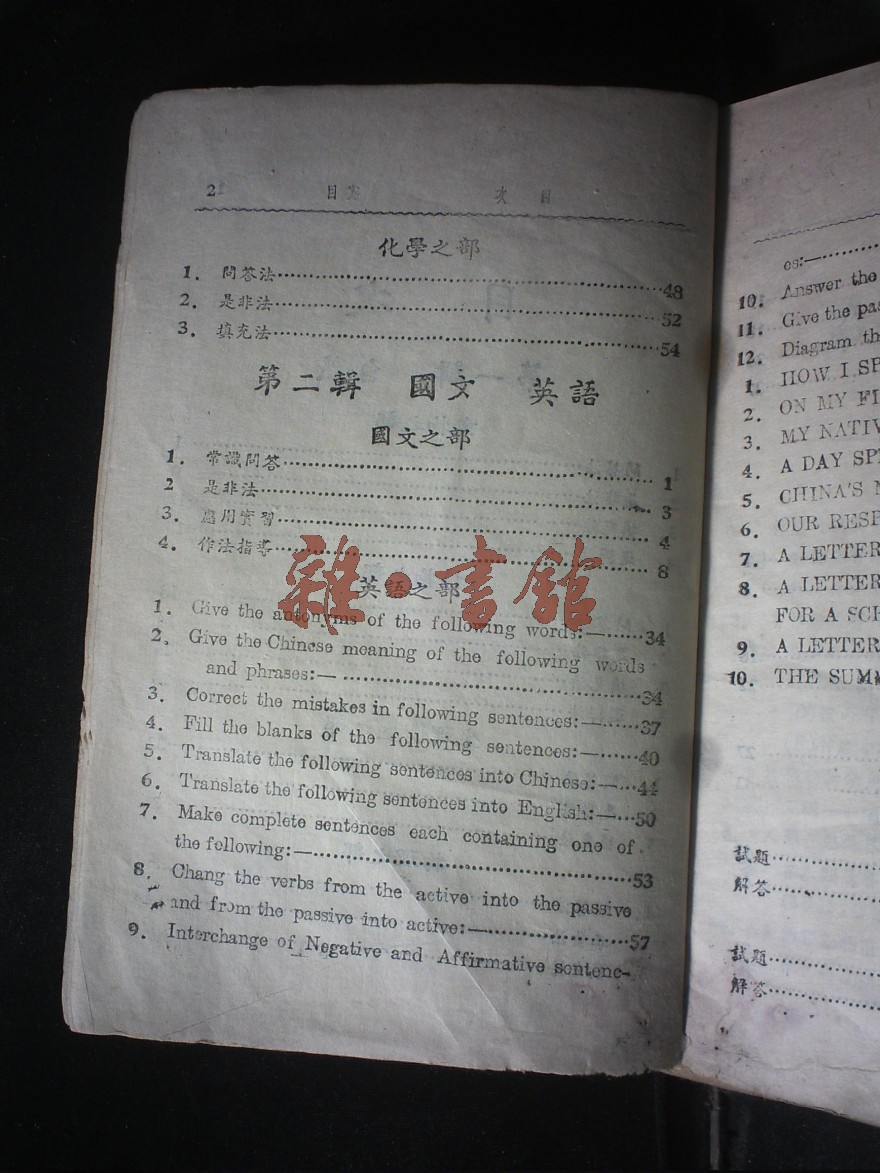 2
目 次
化學之部
1. 問答法……48
2. 是非法……52
3. 填充法……54
第二輯 國文 英語
國文之部
1. 常識問答……1
2 是非法……3
3. 應用實習……4
4. 作法指導……8
英語之部
1. Give the antonyms of the following words:—……34
2. Give the Chinese meaning of the following words
and phrases:—……34
3. Correct the mistakes in following sentences:—……37
4. Fill the blanks of the following sentences:—……40
5. Translate the following sentences into Chinese:—…44
6. Translate the following sentences into English:—…50
7. Make complete sentences each containing one of
the following:—……53
8. Chang the verbs from the active into the passive
and from the passive into active:—……57
9. Interchange of Negative and Affirmative sentenc-
雜·書館
es:—……
10. Answer the
11. Give the pas
12. Diagram th
1. HOW I SP
2. ON MY FI
3. MY NATIV
4. A DAY SPE
5. CHINA'S
6. OUR RESP
7. A LETTER
8. A LETTER
FOR A SCH
9. A LETTER
10. THE SUMM
試題……
解答……
試題……
解答……